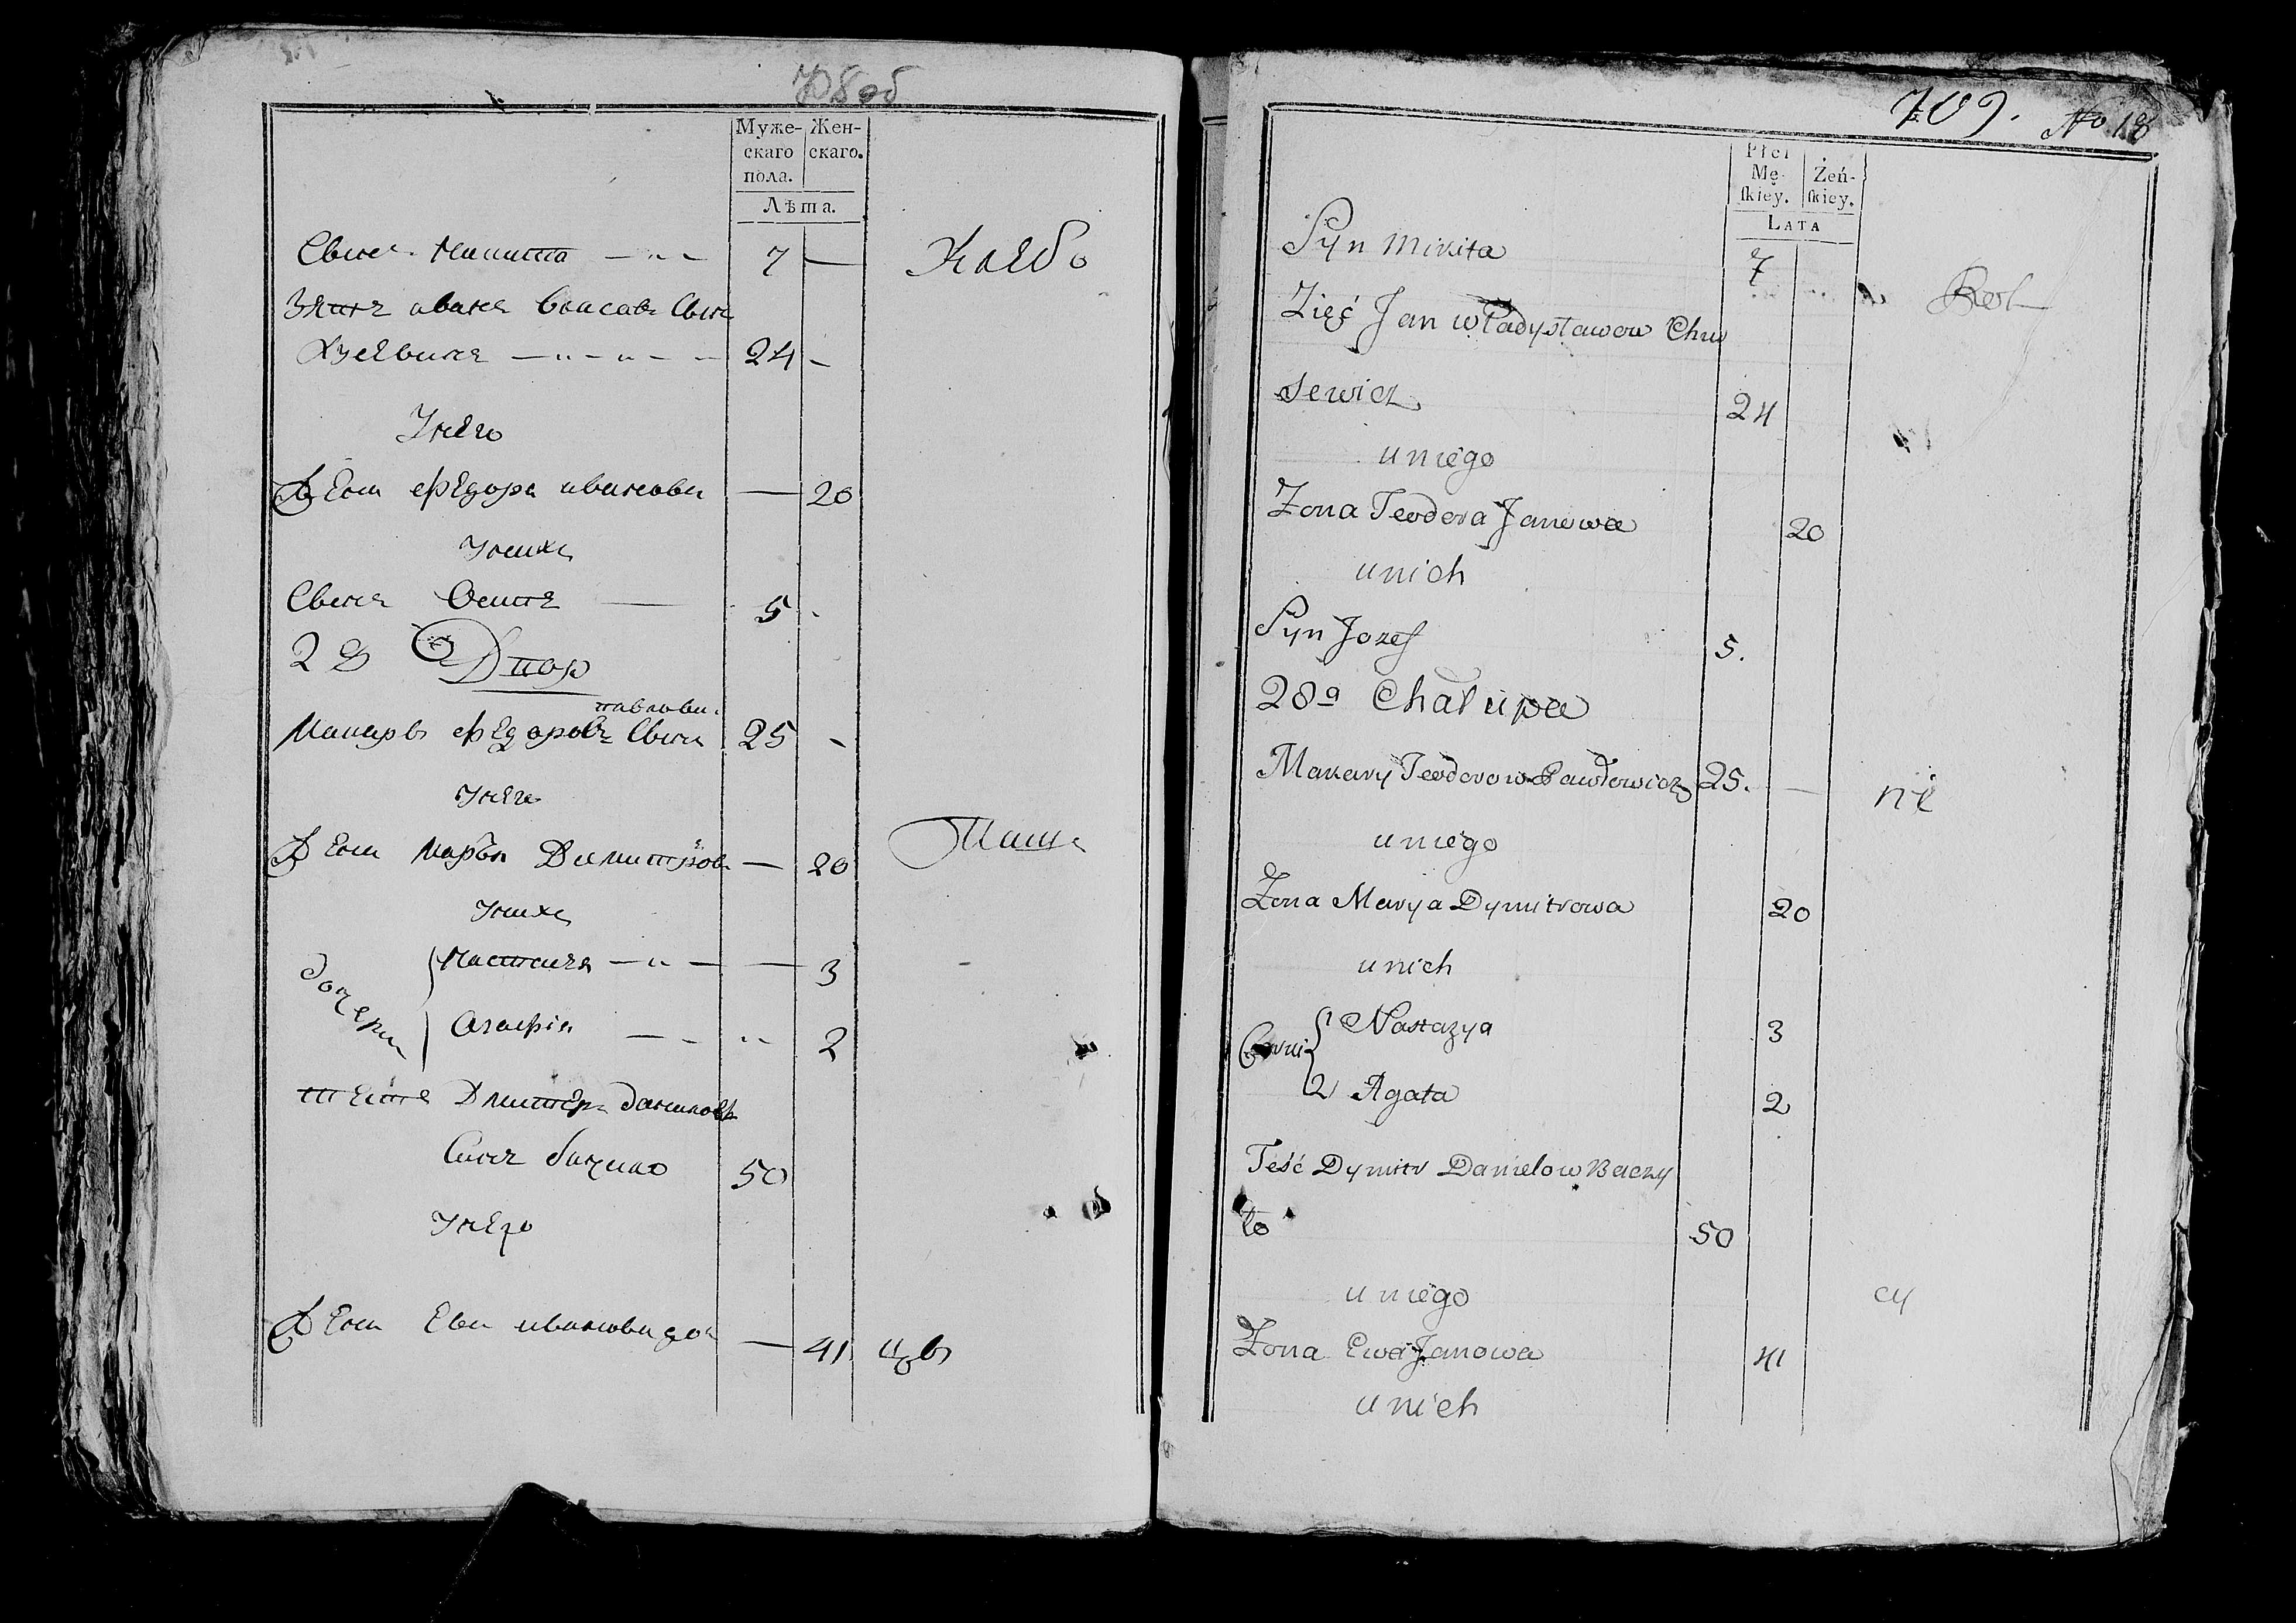 708 об
Муже-
скаго
пола.
Жен-
скаго.
Лѣта.
Сынъ Никита 7 —
Хлебо
Зять Иванъ
24 -
У него
Жена Федора Иванова — 20
У нихъ
Сынъ Осипъ 5
28 Двор
Павлови
Макаръ Федоровъ Сынъ 25 -
У него
Жена Марья Димитрова — 20
У нихъ
дочери
Настасья — 3
Агафія 2
Тесть Дмитеръ Даниловъ
Сынъ 50
У него
Жена Ева Иванова до — 41
709. No 18
Płci
Mę-
ſkiey.
Żeń-
ſkiey.
LATA
Syn Mikita 7
Rol
Zięć Jan Władysławow Chw
sewicz 24
u niego
Zona Teodora Janowa 20
u nich
Syn Jozef 5.
28a Chałupa
Makary Teodorow Pawłowicz 25. —
ni
u niego
Zona Marya Dymitrowa 20
u nich
1 Nastazya 3
2 Agata 2
Teść Dymitr Danielow Baczy
ło 50
u niego
cy
Zona Ewa Janowa 41
u nich